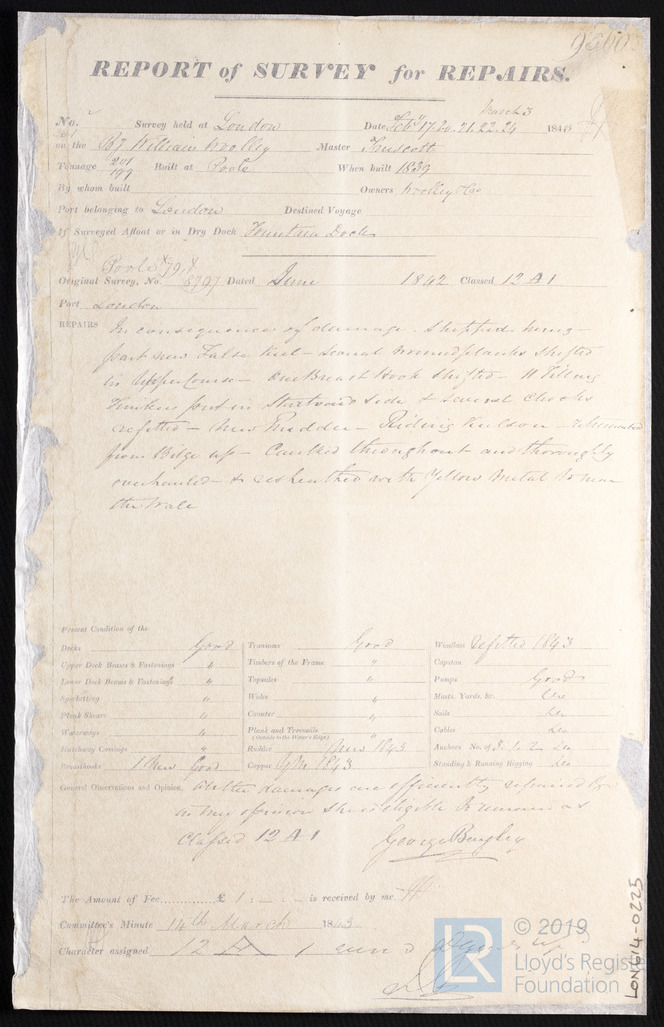 REPORT of SURVEY for REPAIRS.
March 3
No. Survey held at London Date Feb 17. 20. 21. 22. 24 184
on the William Woolley Master Truscott
Tonnage 201 199 Built at Poole When built 1839
By whom built Owners Woolley & Co
Port belonging to London Destined Voyage
If Surveyed Afloat or in Dry Dock Fountain Dock
Poole 79
Original Survey, No. 8797 Dated June 1842 Classed 12 A 1
Port London
REPAIRS In consequence of damage. Shipped
part new False Keel – Several planks shifted
in Upper Course – One Breast Hook shifted – 11 Filling
Timbers put in Starboard side & Several Chocks
refitted – New Rudder – Riding Keelson –
from Bilge up – Caulked throughout and thoroughly
overhauled – & resheathed with Yellow Metal to
the Wale
Present Condition of the
Decks Good
Upper Deck Beams & Fastenings "
Lower Deck Beams & Fastenings "
Spirketting "
Plank Shears "
Waterways "
Hatchway Comings "
Breasthooks 1 New Good
Transoms Good
Timbers of the Frame "
Topsides "
Wales "
Counter "
Plank and Treenails "
(Outside to the Water's Edge)
Rudder New 1843
Copper Y M 1843
Windlass Refitted 1843
Capstan
Pumps Good
Masts, Yards, &c. Do
Sails Do
Cables Do
Anchors No. of 3. 1. 2. Do
Standing & Running Rigging Do
General Observations and Opinion, All the damages are efficiently repaired &
in my opinion she is eligible to remain as
Classed 12 A 1
George Bayley
The Amount of Fee £ 1 : – : – is received by me.
Committee's Minute 14th March 1843
Character assigned 12 A 1
LR
© 2019
Lloyd's Register
Foundation
LON614-0225